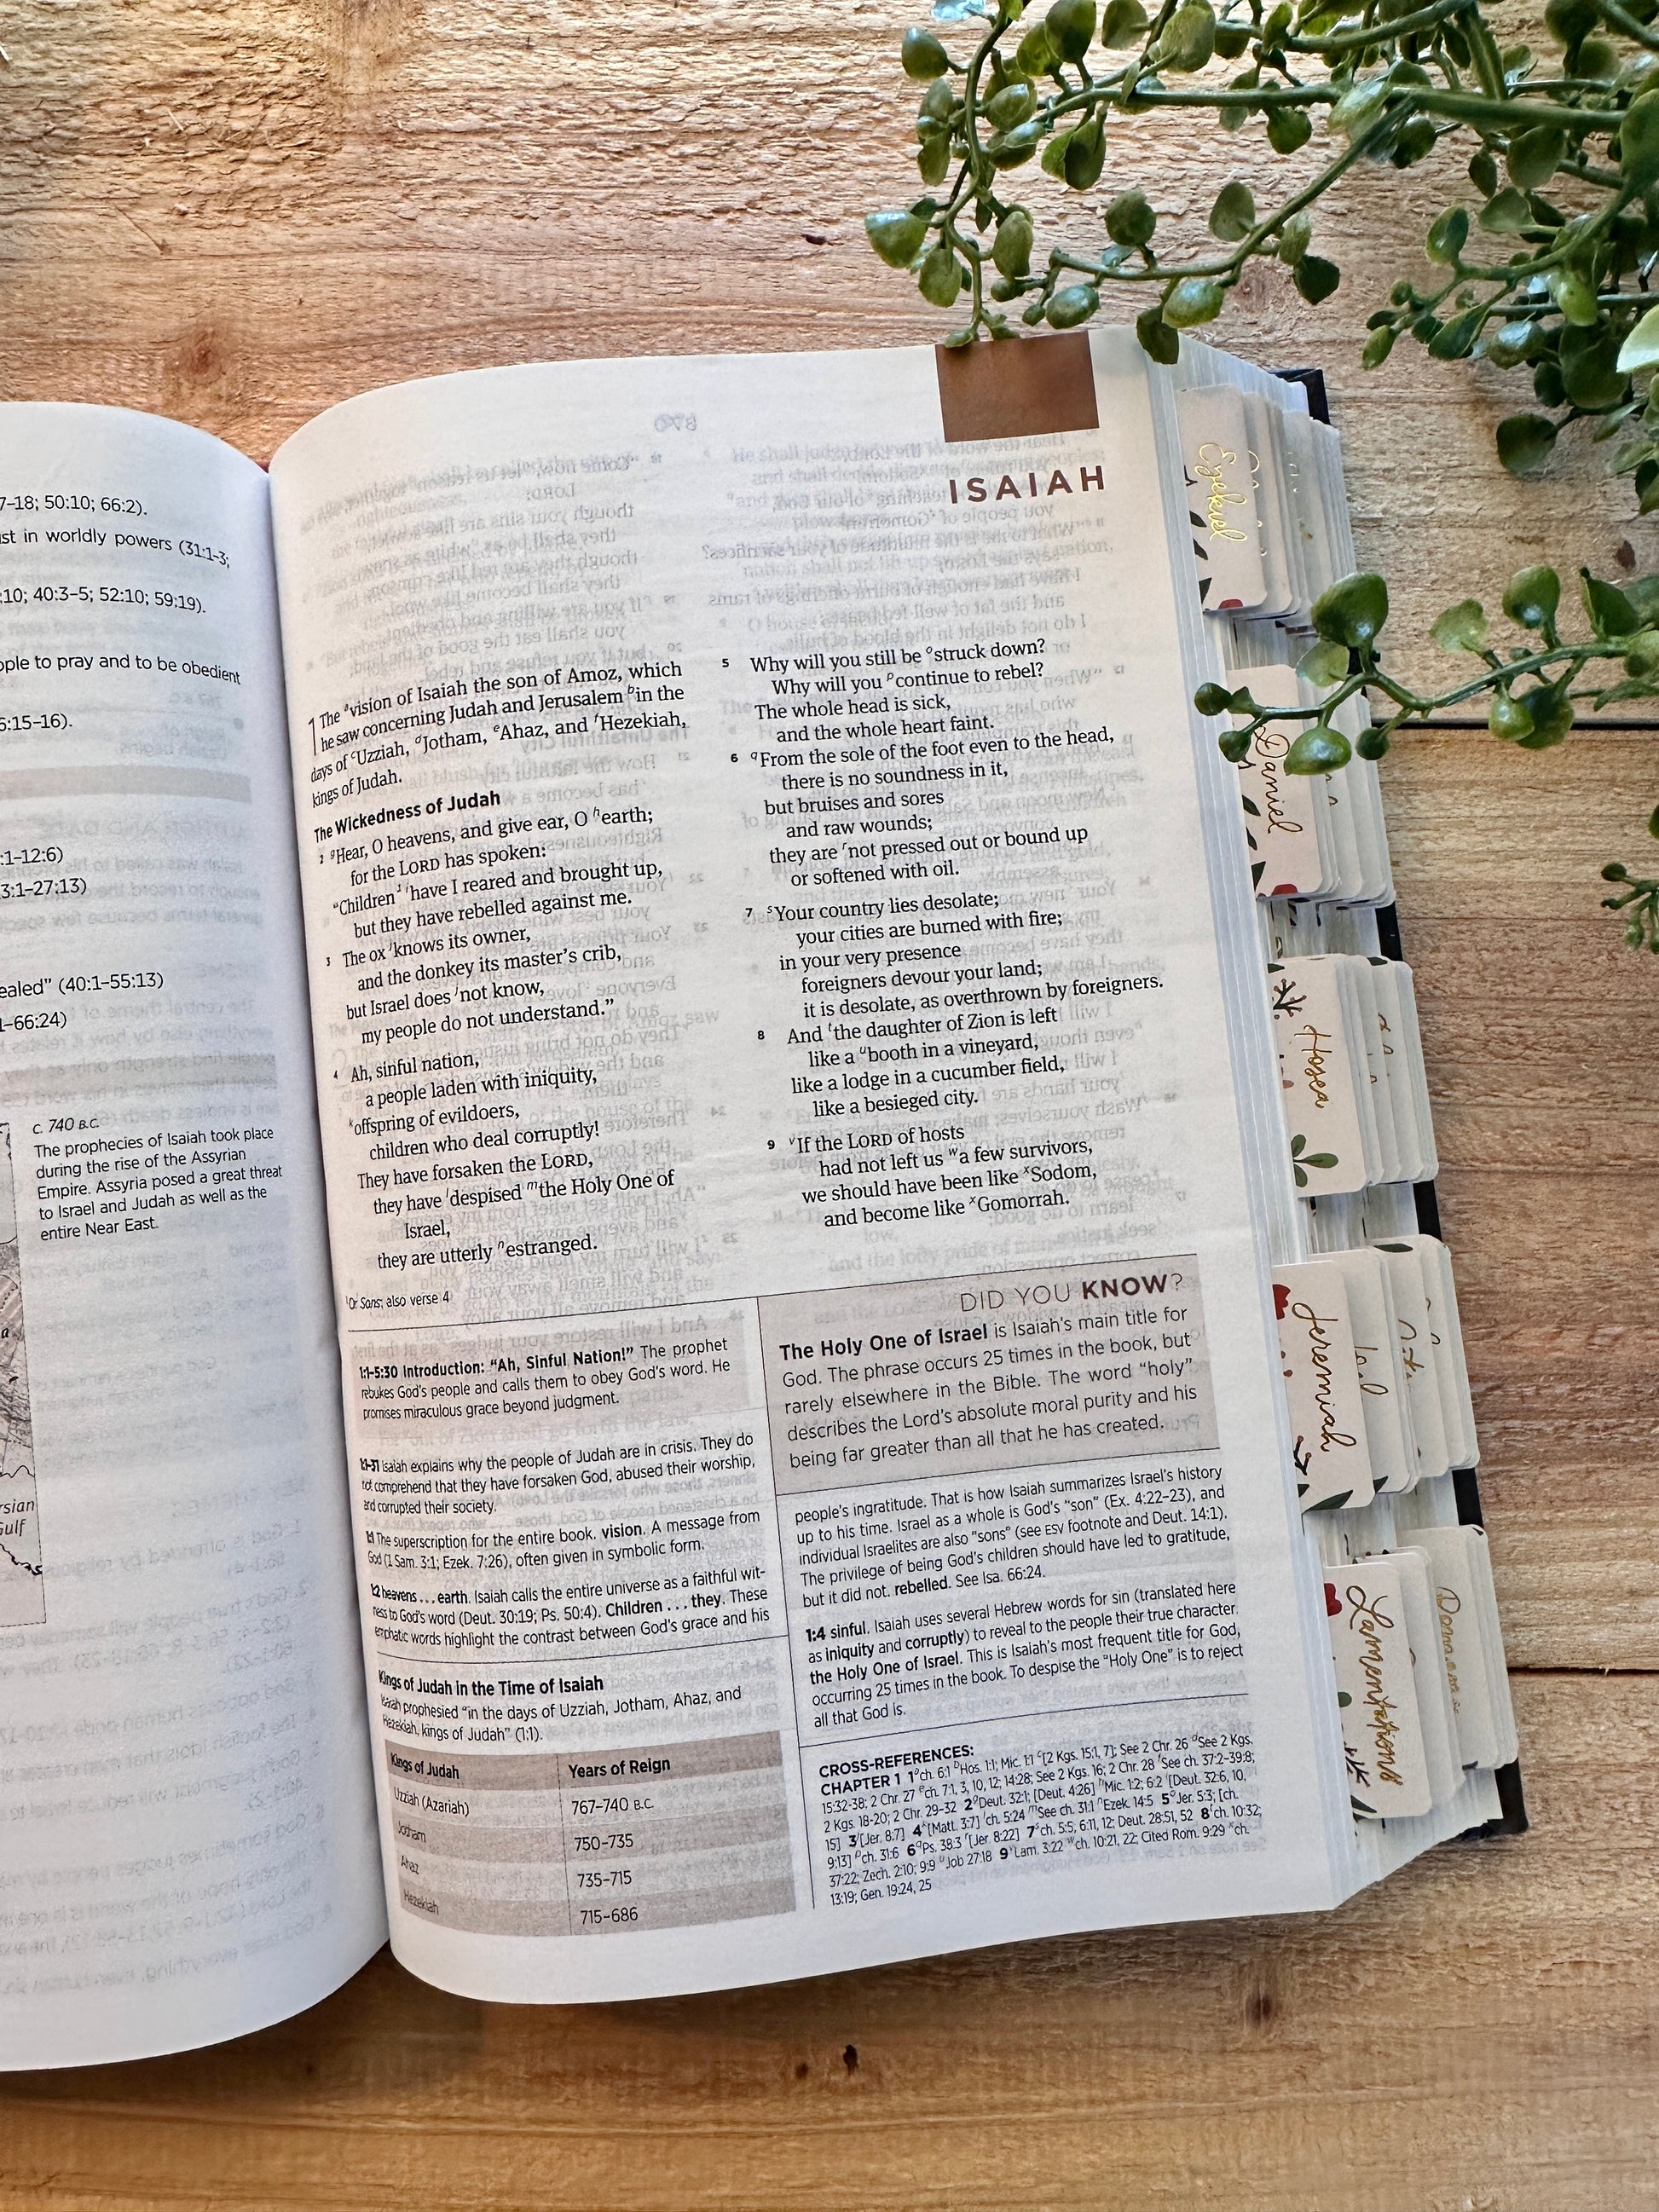 7–18; 50:10; 66:2).
st in worldly powers (31:1–3;
:10; 40:3–5; 52:10; 59:19).
ople to pray and to be obedient
6:15–16).
:1–12:6)
3:1–27:13)
ealed” (40:1–55:13)
1–66:24)
C. 740 B.C.
The prophecies of Isaiah took place
during the rise of the Assyrian
Empire. Assyria posed a great threat
to Israel and Judah as well as the
entire Near East.
rsian
Gulf
ISAIAH
1 The ᵃvision of Isaiah the son of Amoz, which
he saw concerning Judah and Jerusalem ᵇin the
days of ᶜUzziah, ᵈJotham, ᵉAhaz, and ᶠHezekiah,
kings of Judah.
The Wickedness of Judah
2 ᵍHear, O heavens, and give ear, O ʰearth;
for the LORD has spoken:
“Children¹ ⁱhave I reared and brought up,
but they have rebelled against me.
3 The ox ʲknows its owner,
and the donkey its master’s crib,
but Israel does ʲnot know,
my people do not understand.”
4 Ah, sinful nation,
a people laden with iniquity,
ᵏoffspring of evildoers,
children who deal corruptly!
They have forsaken the LORD,
they have ˡdespised ᵐthe Holy One of
Israel,
they are utterly ⁿestranged.
¹Or Sons; also verse 4
5 Why will you still be ᵒstruck down?
Why will you ᵖcontinue to rebel?
The whole head is sick,
and the whole heart faint.
6 ᑫFrom the sole of the foot even to the head,
there is no soundness in it,
but bruises and sores
and raw wounds;
they are ʳnot pressed out or bound up
or softened with oil.
7 ˢYour country lies desolate;
your cities are burned with fire;
in your very presence
foreigners devour your land;
it is desolate, as overthrown by foreigners.
8 And ᵗthe daughter of Zion is left
like a ᵘbooth in a vineyard,
like a lodge in a cucumber field,
like a besieged city.
9 ᵛIf the LORD of hosts
had not left us ʷa few survivors,
we should have been like ˣSodom,
and become like ˣGomorrah.
1:1–5:30 Introduction: “Ah, Sinful Nation!” The prophet
rebukes God’s people and calls them to obey God’s word. He
promises miraculous grace beyond judgment.
1:1–31 Isaiah explains why the people of Judah are in crisis. They do
not comprehend that they have forsaken God, abused their worship,
and corrupted their society.
1:1 The superscription for the entire book. vision. A message from
God (1 Sam. 3:1; Ezek. 7:26), often given in symbolic form.
1:2 heavens . . . earth. Isaiah calls the entire universe as a faithful wit-
ness to God’s word (Deut. 30:19; Ps. 50:4). Children . . . they. These
emphatic words highlight the contrast between God’s grace and his
Kings of Judah in the Time of Isaiah
Isaiah prophesied “in the days of Uzziah, Jotham, Ahaz, and
Hezekiah, kings of Judah” (1:1).
Kings of Judah Years of Reign
Uzziah (Azariah) 767–740 B.C.
Jotham 750–735
Ahaz 735–715
Hezekiah 715–686
DID YOU KNOW?
The Holy One of Israel is Isaiah’s main title for
God. The phrase occurs 25 times in the book, but
rarely elsewhere in the Bible. The word “holy”
describes the Lord’s absolute moral purity and his
being far greater than all that he has created.
people’s ingratitude. That is how Isaiah summarizes Israel’s history
up to his time. Israel as a whole is God’s “son” (Ex. 4:22–23), and
individual Israelites are also “sons” (see ESV footnote and Deut. 14:1).
The privilege of being God’s children should have led to gratitude,
but it did not. rebelled. See Isa. 66:24.
1:4 sinful. Isaiah uses several Hebrew words for sin (translated here
as iniquity and corruptly) to reveal to the people their true character.
the Holy One of Israel. This is Isaiah’s most frequent title for God,
occurring 25 times in the book. To despise the “Holy One” is to reject
all that God is.
CROSS-REFERENCES:
CHAPTER 1 1ᵃch. 6:1 ᵇHos. 1:1; Mic. 1:1 ᶜ[2 Kgs. 15:1, 7]; See 2 Chr. 26 ᵈSee 2 Kgs.
15:32-38; 2 Chr. 27 ᵉch. 7:1, 3, 10, 12; 14:28; See 2 Kgs. 16; 2 Chr. 28 ᶠSee ch. 37:2–39:8;
2 Kgs. 18-20; 2 Chr. 29–32 2ᵍDeut. 32:1; [Deut. 4:26] ʰMic. 1:2; 6:2 ⁱ[Deut. 32:6, 10,
15] 3ʲ[Jer. 8:7] 4ᵏ[Matt. 3:7] ˡch. 5:24 ᵐSee ch. 31:1 ⁿEzek. 14:5 5ᵒJer. 5:3; [ch.
9:13] ᵖch. 31:6 6ᑫPs. 38:3 ʳ[Jer. 8:22] 7ˢch. 5:5, 6:11, 12; Deut. 28:51, 52 8ᵗch. 10:32;
37:22; Zech. 2:10; 9:9 ᵘJob 27:18 9ᵛLam. 3:22 ʷch. 10:21, 22; Cited Rom. 9:29 ˣch.
13:19; Gen. 19:24, 25
Ezekiel
Daniel
Hosea
Jeremiah
Lamentations